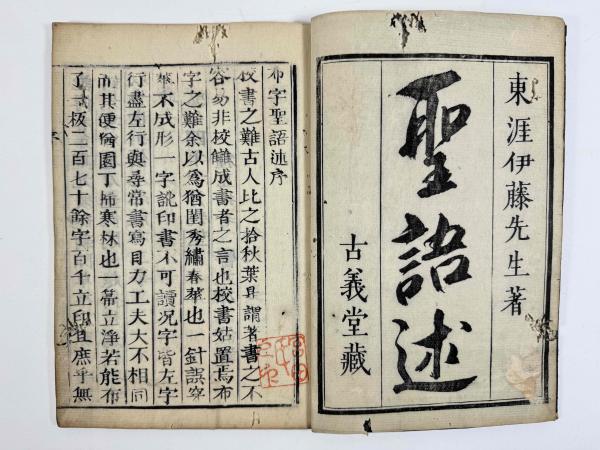 東涯伊藤先生著
聖語述
古義堂藏
布字聖語述序
校書之難古人比之拾秋葉耳謂著書之不
容易非校讎成書者之言也校書姑置焉布
字之難余以爲猶閨秀繡春華也一針誤穿
華不成形一字訛印書不可讀况字皆左字
行盡左行與尋常書寫目力工夫大不相同
而其便猶園丁掃寒林也一帚立淨若能布
了弌板二百七十餘字百千立印且庶乎無